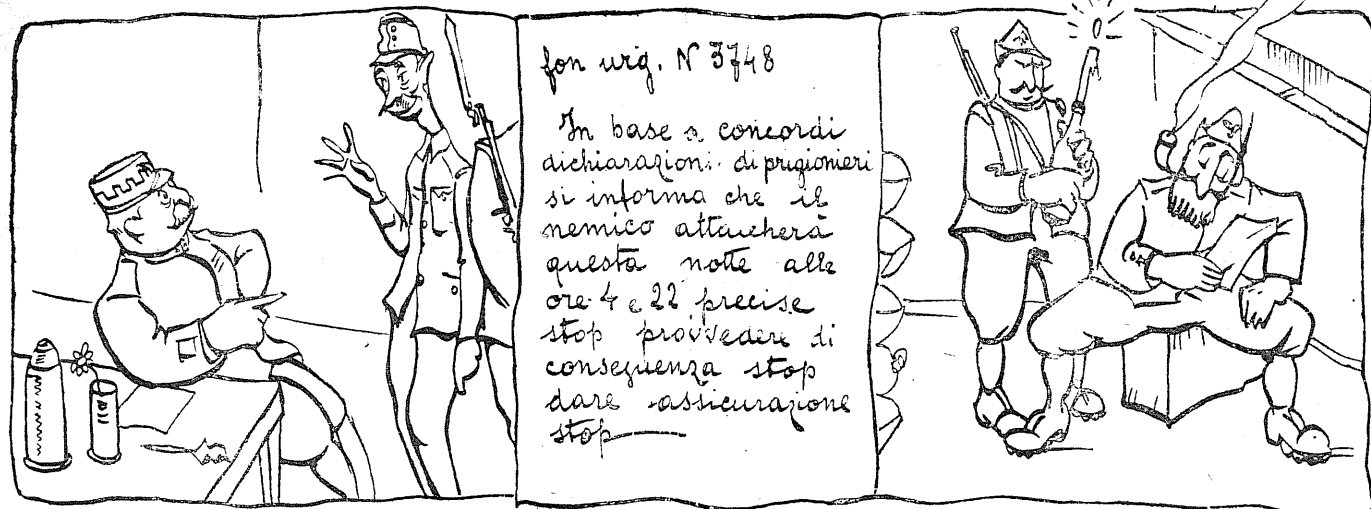 fon urg. N 3748
In base a concordi
dichiarazioni di prigionieri
si informa che il
nemico attaccherà
questa notte alle
ore 4 e 22 precise
stop provvedere di
conseguenza stop
dare assicurazione
stop